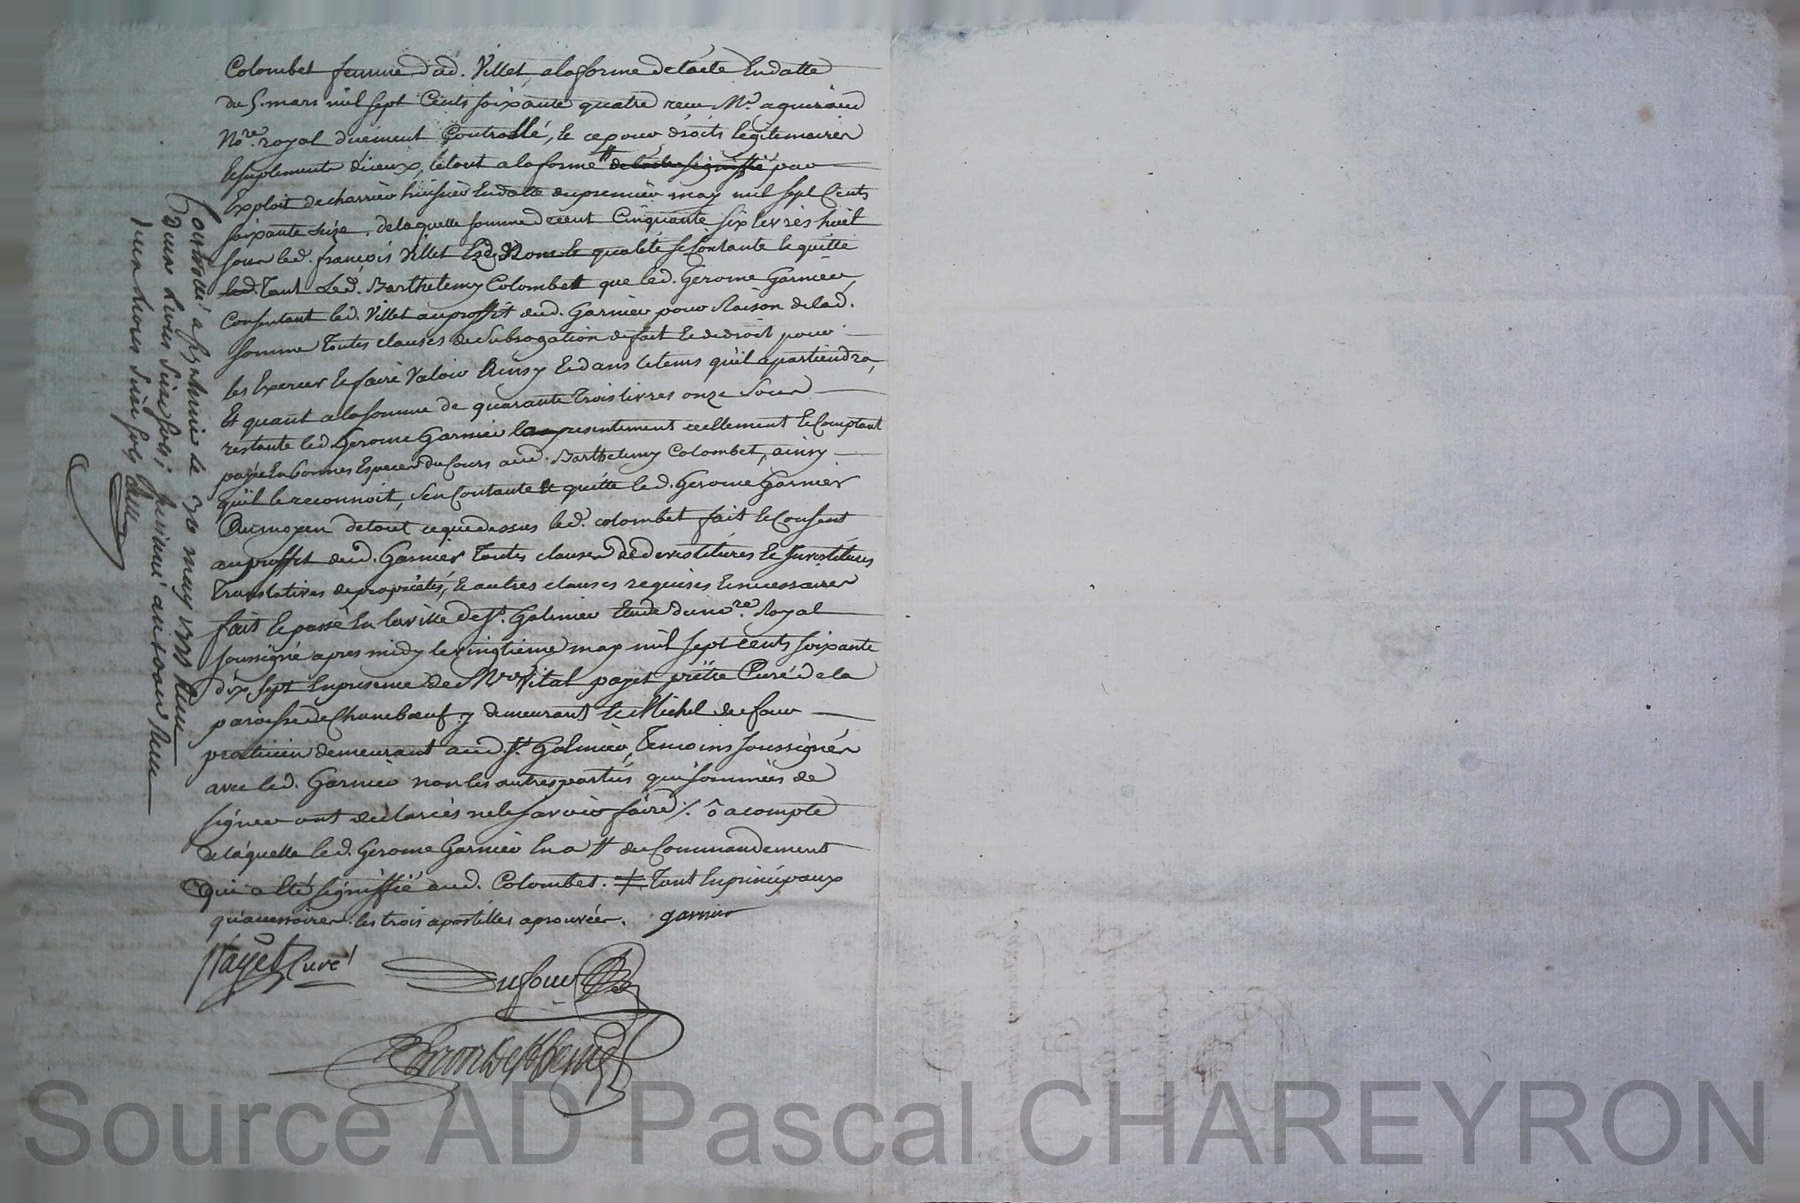 Colombet femme d'ad. Villet, a la forme de l'acte En datte
du 5. mars mil sept Cents soixante quatre recu Mr. aguiraud
Nore. royal duement Controllé, le ce pour droits legitimaires
le suplement d'iceux, le tout a la forme # de lacte signiffié par
Exploit de charrier huissier En datte du premier may mil sept Cents
soixante seize, de laquelle somme de cent Cinquante six livres huit
sous led. françois Villet Esd. Nom et qualité se Contante le quitte
led. Tant Led. Barthelemy Colombet que led. Gerome Garnier,
Consentant led. Villet au proffit dud. Garnier pour Raison de lad.
somme Toutes clauses de Subrogation de fait Et de droit pour
les Exercer Et faire Valoir Ainsy Et dans le tems qu'il apartiendra,
Et quant a la somme de quarante Trois livres onze Sous
restante led. Gerome Garnier la presentement reellement Et Comptant
payée En bonnes Especes du Cours aud. Barthelemy Colombet, ainsy
qu'il le reconnoit, s'en Contante Et quitte led. Gerome Garnier
Au moyen de tout ce que dessus led. colombet fait Et Consent
au proffit dud. Garnier Toutes clauses de devestitures Et Investitures
Translatives de proprietés, Et autres clauses requises Et necessaires
fait Et passé En la ville de St. Galmier Etude du nore. Royal
soussigné apres midy le vingtieme may mil sept cents soixante
dix sept En presence de Mre Vital payet prêtre Curé de la
paroisse de Chambœuf y demeurant Et Michel dufour
praticien demeurant aud. St. Galmier, Temoins soussignés
avec led. Garnier non les autres parties qui sommées de
signer ont declarées ne le savoir faire ./. ô a compte
de laquelle led. Gerome Garnier En a # du Commandement
Qui a Eté signiffié aud. Colombet. ≠ Tant En principaux
qu'accessoires. les trois apostilles aprouvées. garnier
Payet Curé
Dufour
Controllé a St galmier le 30 may 1777 Reçu
d'une Livre Seize sols;
d'un Livres Seize sols